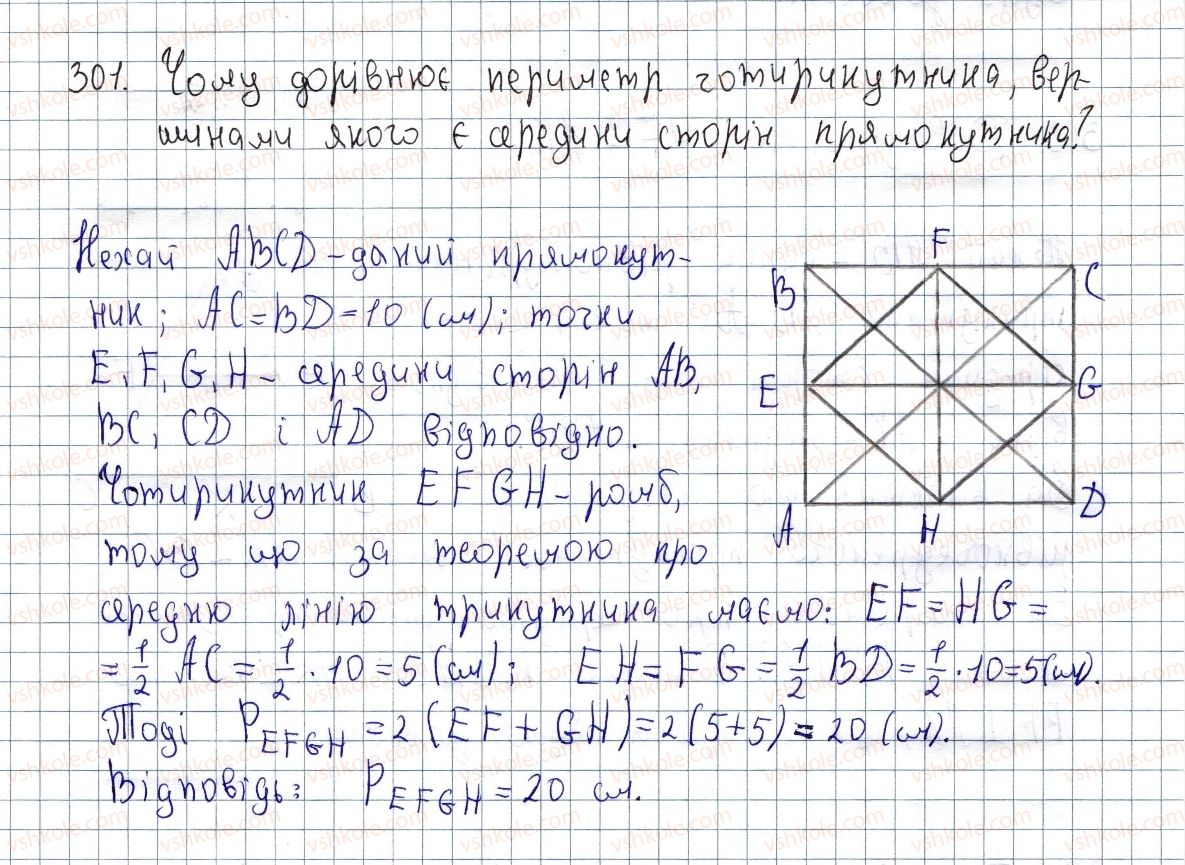 301. Чому дорівнює периметр чотирикутника, вер-
шинами якого є середини сторін прямокутника?
Нехай ABCD - даний прямокут-
ник; AC = BD = 10 (см); точки
E, F, G, H - середини сторін AB,
BC, CD і AD відповідно.
Чотирикутник EFGH - ромб,
тому що за теоремою про
середню лінію трикутника маємо: EF = HG =
= 1/2 AC = 1/2 · 10 = 5 (см); EH = FG = 1/2 BD = 1/2 · 10 = 5 (см).
Тоді P EFGH = 2 (EF + GH) = 2 (5+5) = 20 (см).
Відповідь: P EFGH = 20 см.
F
B
C
E
G
A
H
D
vshkole.com